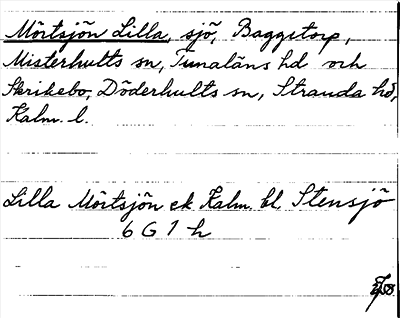 Mörtsjön Lilla, sjö, Baggetorp,
Misterhults sn, Tunaläns hd och
Skrikebo, Döderhults sn, Stranda hd,
Kalm. l.
Lilla Mörtsjön ek Kalm. bl. Stensjö
6 G 1 h